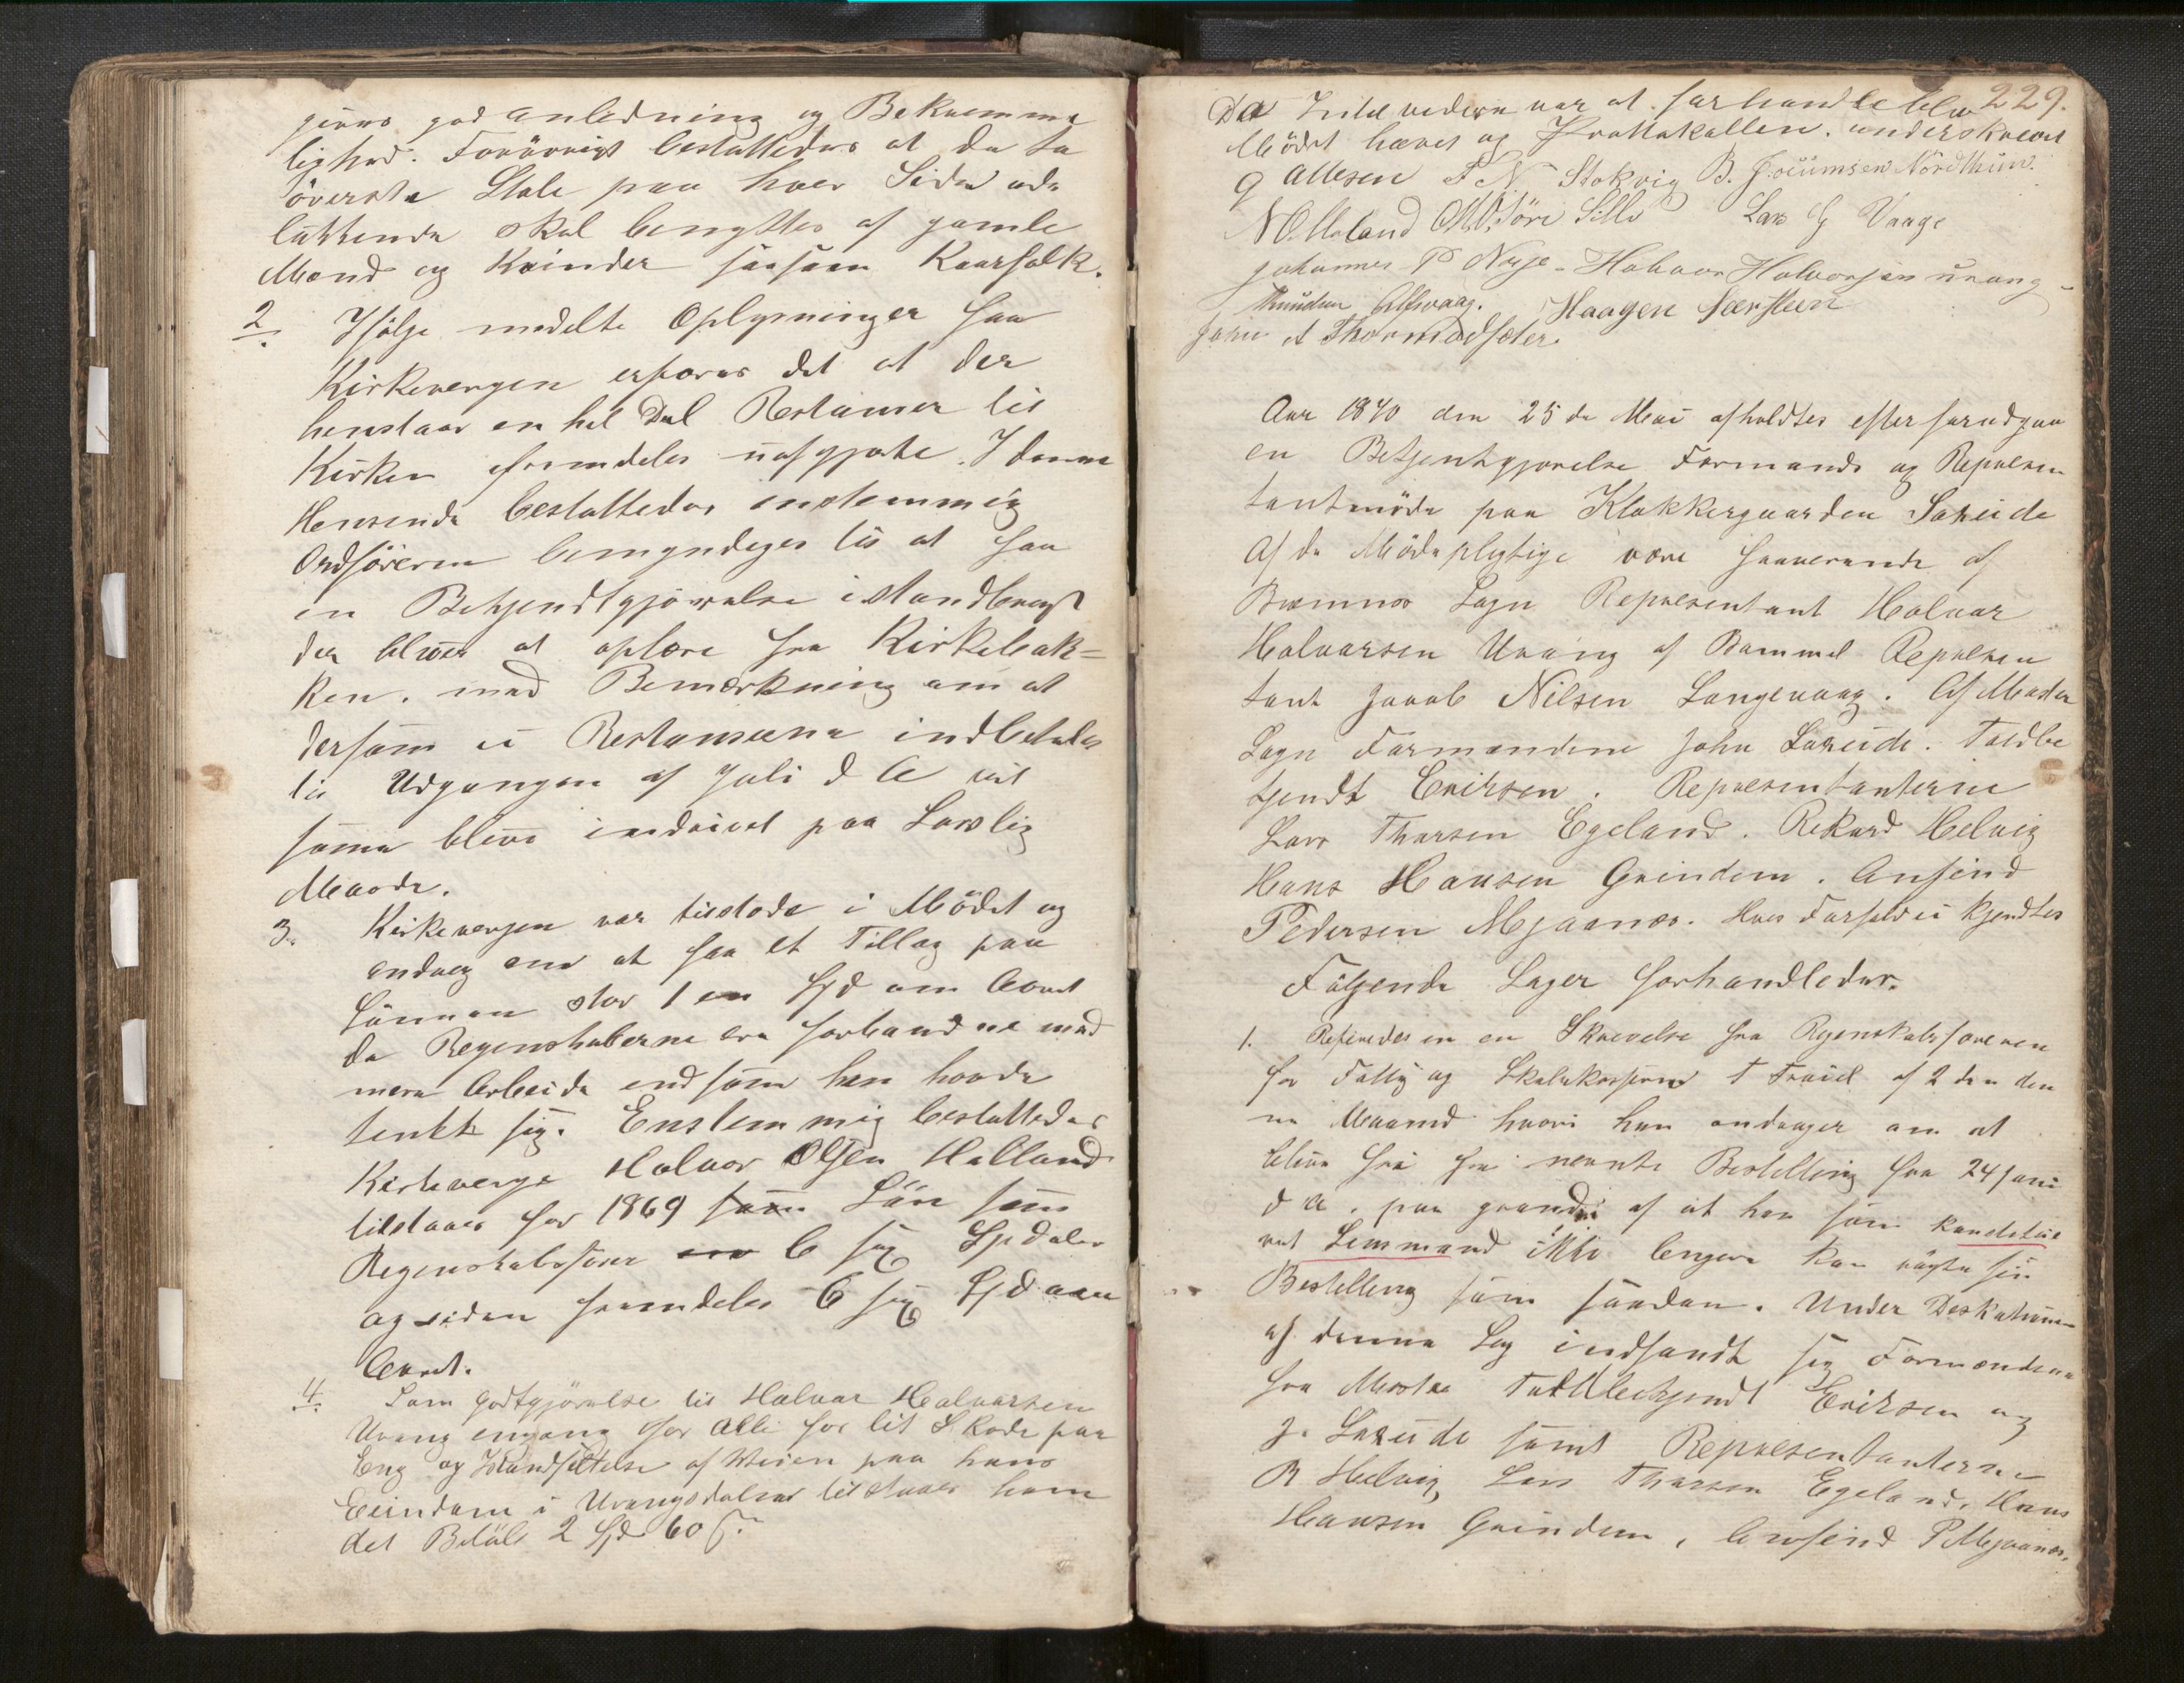 gives god anledning og Bekvemme
lighed. Forövrigt besluttedes at de to
överste Stole paa hver Side ude
lukkende skal benyttes af gamle
Mænd og Kvinder saasom Kaarfolk.
2. Ifölge meddelte Oplysninger fra
Kirkevergen erfores det at der
henstaar en hel Del Restanser til
Kirken fremdeles uafgjorte. I denne
Henseende besluttedes enstemmig
Ordföreren bemyndiges til at faa
en Bekjendtgjörelse istandbragt
der bliver at oplæse fra Kirkebak=
ken, med Bemærkning om at
dersom ei Restanserne indbetales
til Udgangen af Juli d A vil
samme blive inddrivet paa Lovlig
Maade.
3. Kirkevergen var tilstede i Mödet og
androg om at faa et Tillæg paa
Lönnen stor 1 en Spd om Aaret
da Regenskaberne ere forbundne med
mere Arbeide end som han havde
tenkt sig. Enstemmig besluttedes
Kirkeverge Halvor Olsen Halland
tilstaaes for 1869 som Lön som
Regenskabsförer 6 sex Spdaler
og siden fremdeles 6 sex Spd om
Aaret.
4. Som godtgjörelse til Halvor Halvorsen
Urang engang for Alle for lit Skade paa
Eng og Istandsettelse af Veien paa hans
Eiendom i Urangsdalen tilstaaes ham
det Belöb 2 Spd 60 s.
229.
Da Intet videre var at forhandle blev
Mödet hævet og Prottokollen underskrevet
G Attesen T N Stokvig B. Joeumsen Nordthun.
N O Moland Lars G Vaage
Johannes P Nesse - Halvor Halvorsen Urang -
Knudsen Alfsvaag. Haagen Særsteen
John A Thormodsæter.
Aar 1870 den 25 de Mai afholdtes efter forudgaa
en Betjentgjörelse Formands og Represen
tantmöde paa Klokkergaarden Sareide
Af de Mödepligtige være frawerende af
Bremnes Sogn Representant Halvor
Halvorsen Urang af Bömmel Represen
tant Jacob Nilsen Langevaag. Af Moster
Sogn Formendene John Sareide. Tolbe
tjendt Eriksen. Representanterne
Lars Tharsen Egeland. Rekard Helvig
Hans Hansen Grindem. Anfind
Pedersen Mjaanes. Hves Forfald ei kjendtes
Fölgende Sager forhandledes.
1. Refereredes en en Skrevelse fra Regenskabsföreren
for Fattig og Skolekassen T Traiel af 2 den den
ne Maaned hvori han andrager om at
blive fri fra nevnte Bestilling fra 24 Juni
d A. paa grund af at han som konstitue
ret Lensmand ikke lengere kan rögte sin
Bestilling som saadan. Under Deskutionen
af denne Sag indfandt sig Formendene
fra Moster Tollbetjendt Eriksen og
J. Sareide samt Representanterne
R Helvig Lars Tharsen Egeland, Hans
Hansen Grindem, Anfind P Mjaanes.